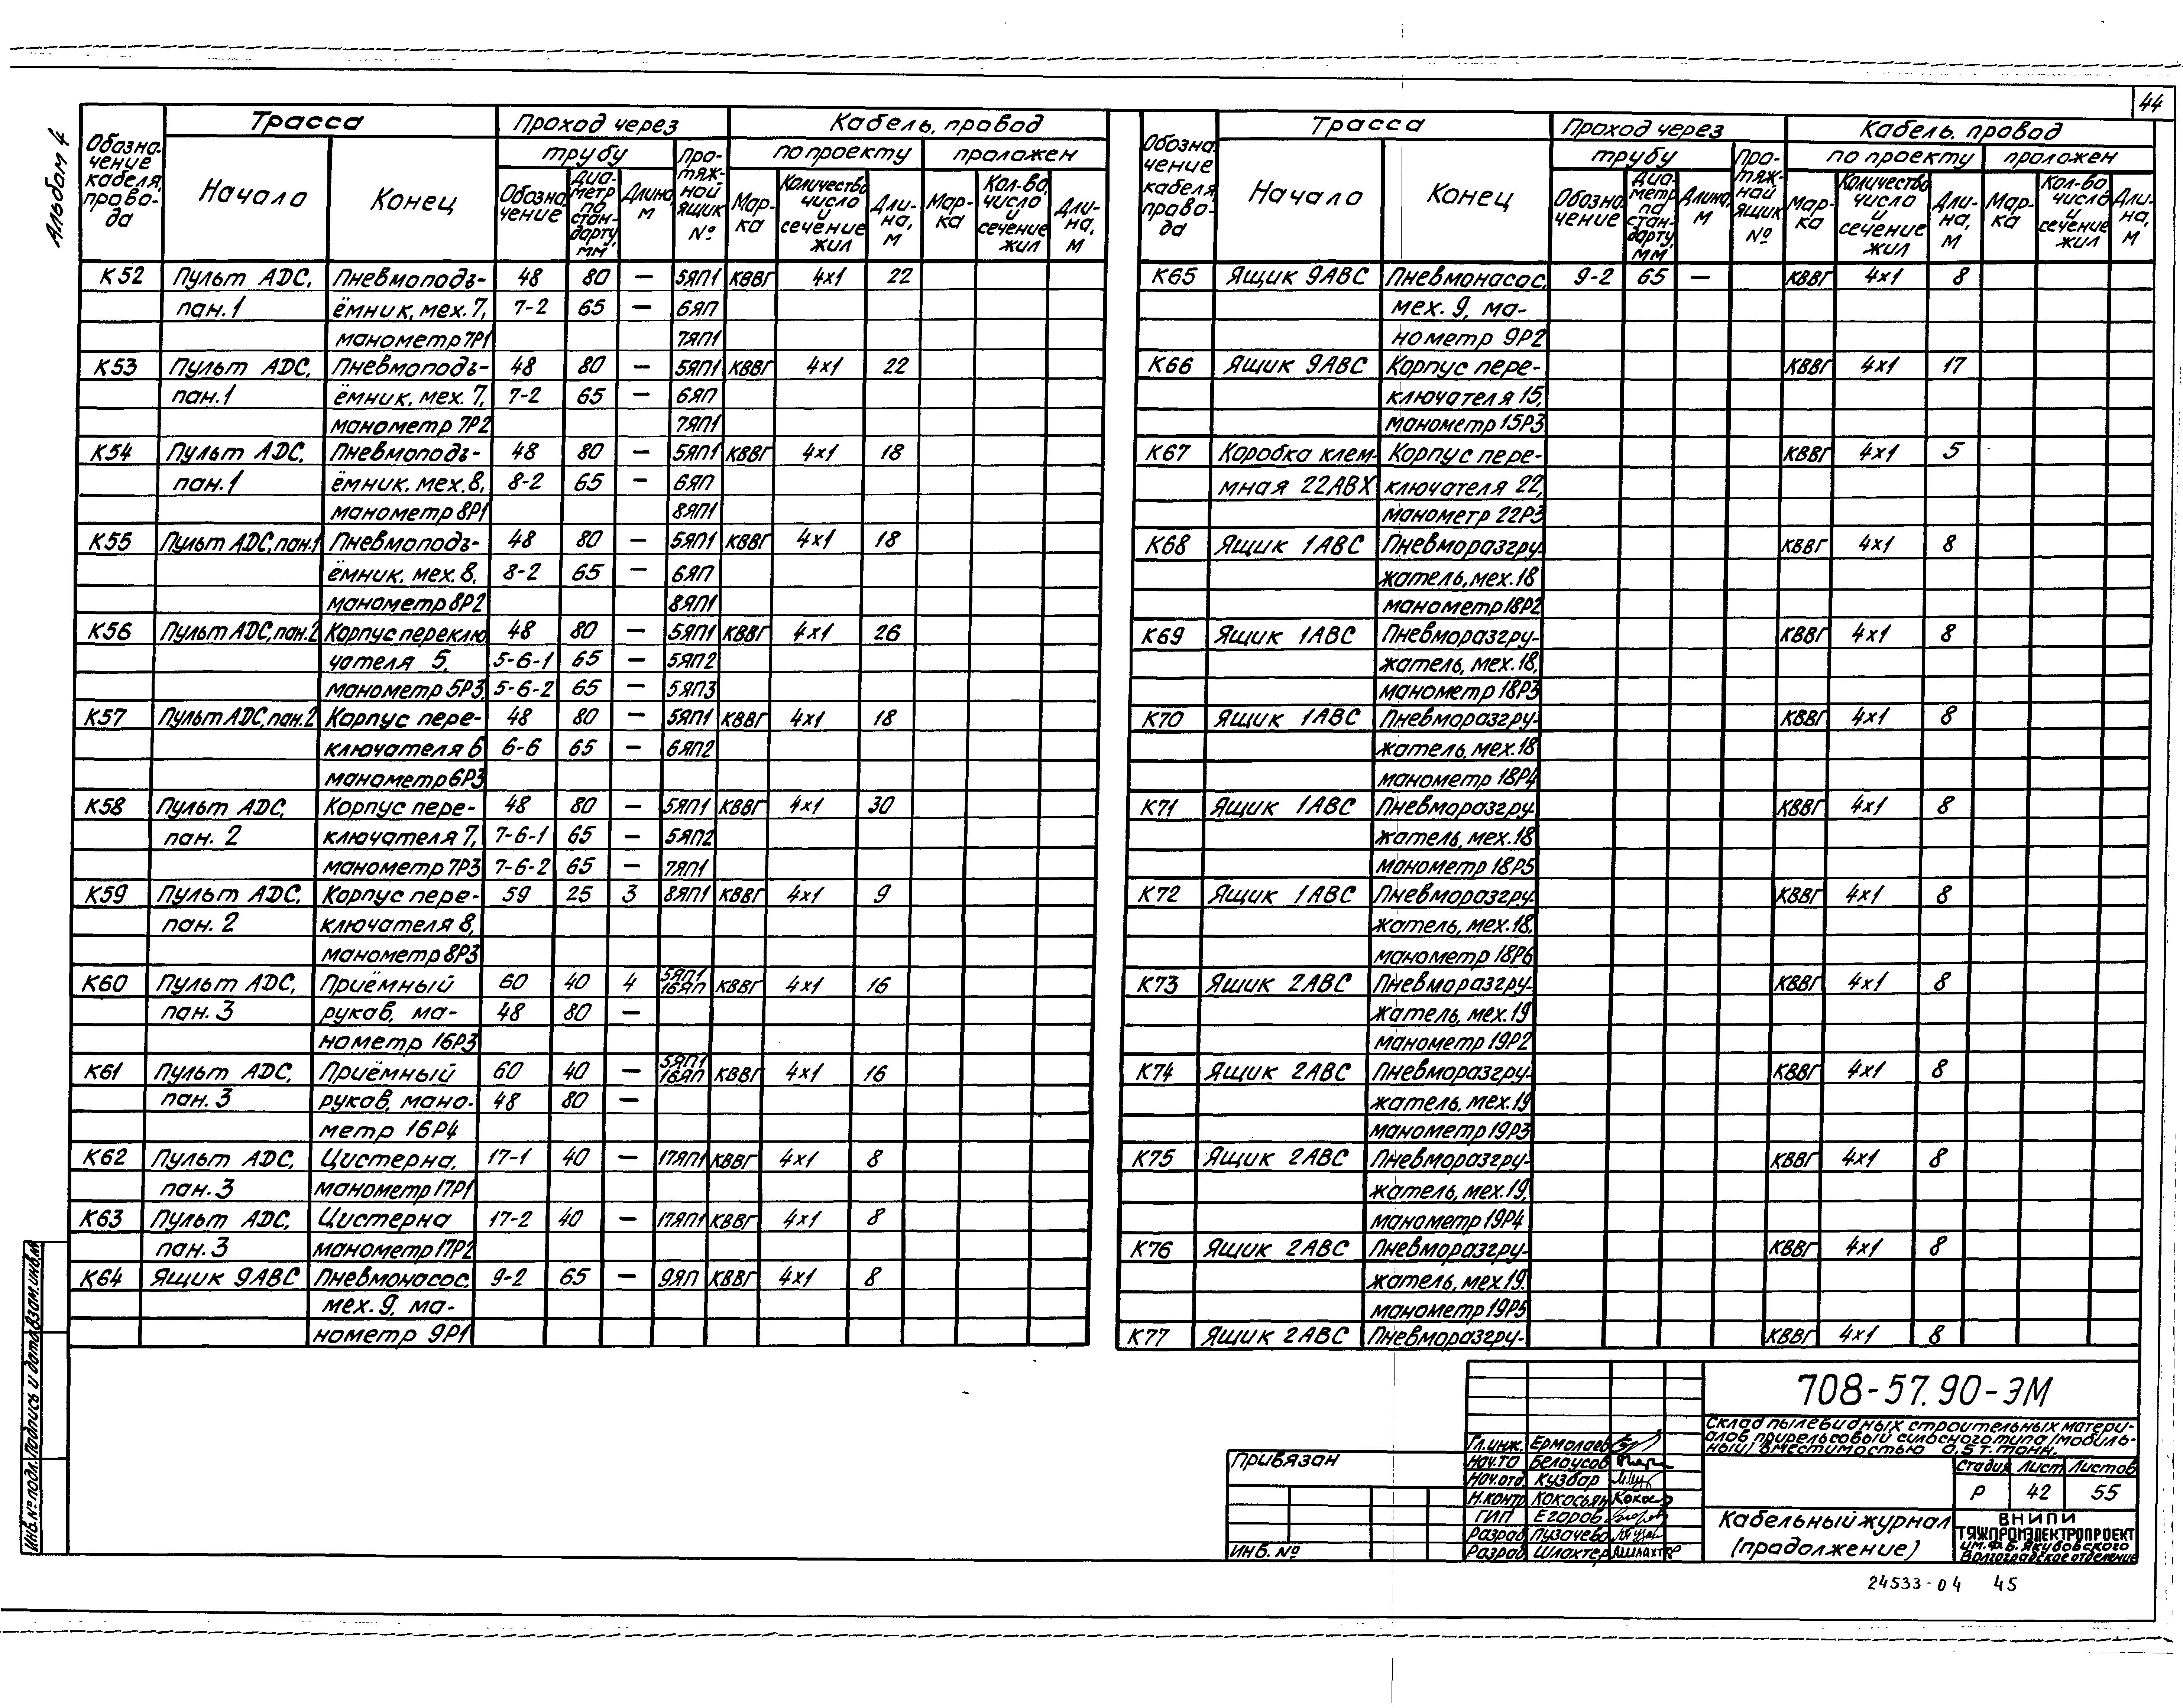 44
Альбом 4
Обозначение кабеля, провода | Трасса | Проход через | Кабель, провод
Начало | Конец | трубу | Протяжной ящик № | по проекту | проложен
Обозначение | Диаметр по стандарту, мм | Длина, м | Марка | Количество число и сечение жил | Длина, м | Марка | Кол-во, число и сечение жил | Длина, м
К52 Пульт ADC, Пневмоподъ- 48 80 — 5ЯП1 КВВГ 4х1 22
пан.1 ёмник, мех. 7, 7-2 65 — 6ЯП
манометр 7Р1 7ЯП1
К53 Пульт ADC, Пневмоподъ- 48 80 — 5ЯП1 КВВГ 4х1 22
пан.1 ёмник, мех. 7, 7-2 65 — 6ЯП
манометр 7Р2 7ЯП1
К54 Пульт ADC, Пневмоподъ- 48 80 — 5ЯП1 КВВГ 4х1 18
пан.1 ёмник, мех. 8, 8-2 65 — 6ЯП
манометр 8Р1 8ЯП1
К55 Пульт ADC, пан.1 Пневмоподъ- 48 80 — 5ЯП1 КВВГ 4х1 18
ёмник, мех. 8, 8-2 65 — 6ЯП
манометр 8Р2 8ЯП1
К56 Пульт ADC, пан.2 Корпус переклю 48 80 — 5ЯП1 КВВГ 4х1 26
чателя 5, 5-6-1 65 — 5ЯП2
манометр 5Р3, 5-6-2 65 — 5ЯП3
К57 Пульт ADC, пан.2 Корпус пере- 48 80 — 5ЯП1 КВВГ 4х1 18
ключателя 6 6-6 65 — 6ЯП2
манометр 6Р3
К58 Пульт ADC, Корпус пере- 48 80 — 5ЯП1 КВВГ 4х1 30
пан. 2 ключателя 7, 7-6-1 65 — 5ЯП2
манометр 7Р3 7-6-2 65 — 7ЯП1
К59 Пульт ADC, Корпус пере- 59 25 3 8ЯП1 КВВГ 4х1 9
пан. 2 ключателя 8,
манометр 8Р3
К60 Пульт ADC, Приёмный 60 40 4 5ЯП1 16ЯП КВВГ 4х1 16
пан. 3 рукав, ма- 48 80 —
нометр 16Р3
К61 Пульт ADC, Приёмный 60 40 — 5ЯП1 16ЯП КВВГ 4х1 16
пан. 3 рукав, мано- 48 80 —
метр 16Р4
К62 Пульт ADC, Цистерна, 17-1 40 — 17ЯП1 КВВГ 4х1 8
пан. 3 манометр 17Р1
К63 Пульт ADC, Цистерна 17-2 40 — 17ЯП1 КВВГ 4х1 8
пан. 3 манометр 17Р2
К64 Ящик 9АВС Пневмонасос, 9-2 65 — 9ЯП КВВГ 4х1 8
мех. 9, ма-
нометр 9Р1
Обозначение кабеля, провода | Трасса | Проход через | Кабель, провод
Начало | Конец | трубу | Протяжной ящик № | по проекту | проложен
Обозначение | Диаметр по стандарту, мм | Длина, м | Марка | Количество число и сечение жил | Длина, м | Марка | Кол-во число и сечение жил | Длина, м
К65 Ящик 9АВС Пневмонасос, 9-2 65 — КВВГ 4х1 8
мех. 9, ма-
нометр 9Р2
К66 Ящик 9АВС Корпус пере- КВВГ 4х1 17
ключателя 15,
манометр 15Р3
К67 Коробка клем- Корпус пере- КВВГ 4х1 5
мная 22АВХ ключателя 22,
манометр 22Р3
К68 Ящик 1АВС Пневморазгру- КВВГ 4х1 8
жатель, мех. 18
манометр 18Р2
К69 Ящик 1АВС Пневморазгру- КВВГ 4х1 8
жатель, мех. 18,
манометр 18Р3
К70 Ящик 1АВС Пневморазгру- КВВГ 4х1 8
жатель, мех. 18
манометр 18Р4
К71 Ящик 1АВС Пневморазгру- КВВГ 4х1 8
жатель, мех. 18
манометр 18Р5
К72 Ящик 1АВС Пневморазгру- КВВГ 4х1 8
жатель, мех. 18,
манометр 18Р6
К73 Ящик 2АВС Пневморазгру- КВВГ 4х1 8
жатель, мех. 19
манометр 19Р2
К74 Ящик 2АВС Пневморазгру- КВВГ 4х1 8
жатель, мех. 19
манометр 19Р3
К75 Ящик 2АВС Пневморазгру- КВВГ 4х1 8
жатель, мех. 19,
манометр 19Р4
К76 Ящик 2АВС Пневморазгру- КВВГ 4х1 8
жатель, мех. 19.
манометр 19Р5
К77 Ящик 2АВС Пневморазгру- КВВГ 4х1 8
Инв. № подл. Подпись и дата Взам. инв. №
Привязан
Инв. №
Гл. инж. Ермолаев
Нач. ТО Белоусов
Нач. отд. Кузбар
Н. контр Кокосьян
ГИП Егоров
Разраб Пузачева
Разраб Шлахтер
708-57.90-ЭМ
Склад пылевидных строительных матери-
алов прирельсовый силосного типа (мобиль-
ный) вместимостью 0,5 т. тонн.
Стадия Лист Листов
Р 42 55
Кабельный журнал
(продолжение)
ВНИПИ
ТЯЖПРОМЭЛЕКТРОПРОЕКТ
им. Ф.Б. Якубовского
Волгоградское отделение
24533-04 45